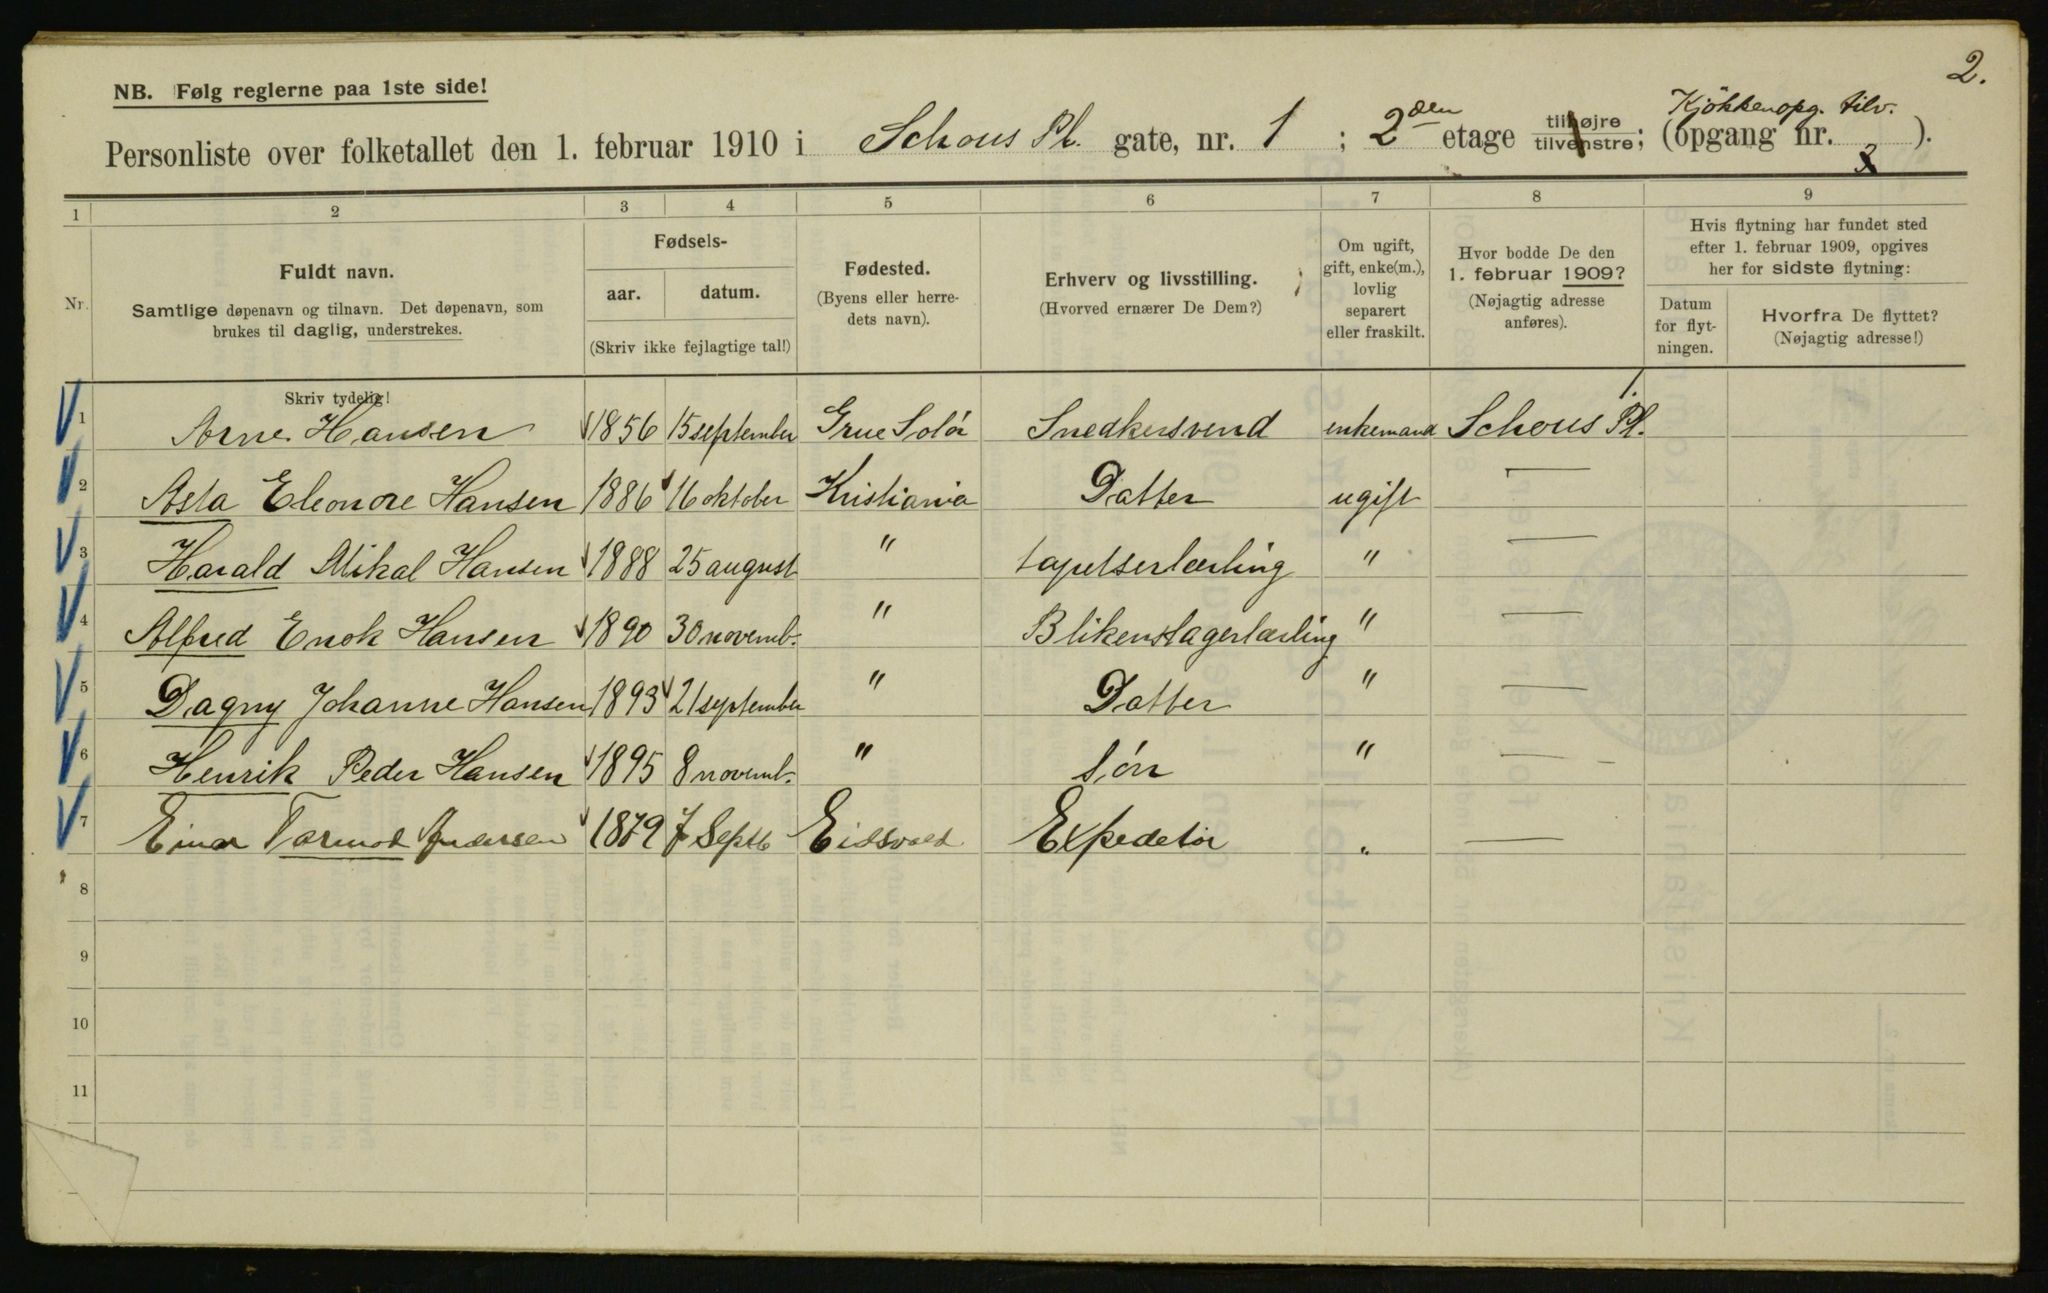 2.
NB. Følg reglerne paa 1ste side!
Personliste over folketallet den 1. februar 1910 i Schous Pl. gate, nr. 1 ; 2den etage tilhøjre tilvenstre; (opgang nr. Kjøkkenopg. tilv. 2 ).
1 2 3 4 5 6 7 8 9
Nr.
Fuldt navn.
Samtlige døpenavn og tilnavn. Det døpenavn, som
brukes til daglig, understrekes.
Fødsels-
aar. datum.
(Skriv ikke fejlagtige tal!)
Fødested.
(Byens eller herre-
dets navn).
Erhverv og livsstilling.
(Hvorved ernærer De Dem?)
Om ugift,
gift, enke(m.),
lovlig
separert
eller fraskilt.
Hvor bodde De den
1. februar 1909?
(Nøjagtig adresse
anføres).
Hvis flytning har fundet sted
efter 1. februar 1909, opgives
her for sidste flytning:
Datum
for flyt-
ningen.
Hvorfra De flyttet?
(Nøjagtig adresse!)
Skriv tydelig!
1 Arne Hansen 1856 15 september Grue Solør Snedkersvend enkemand Schous Pl. 1.
2 Asta Eleonore Hansen 1886 16 oktober Kristiania Datter ugift —
3 Harald Mikal Hansen 1888 25 august " tapetserlærling " —
4 Alfred Enok Hansen 1890 30 novemb. " Blikenslagerlærling " —
5 Dagny Johanne Hansen 1893 21 september " Datter " —
6 Henrik Peder Hansen 1895 8 novemb. " Søn " —
7 Einar Tormod Andersen 1879 7 Septb Eidsvold Expeditør " —
8
9
10
11